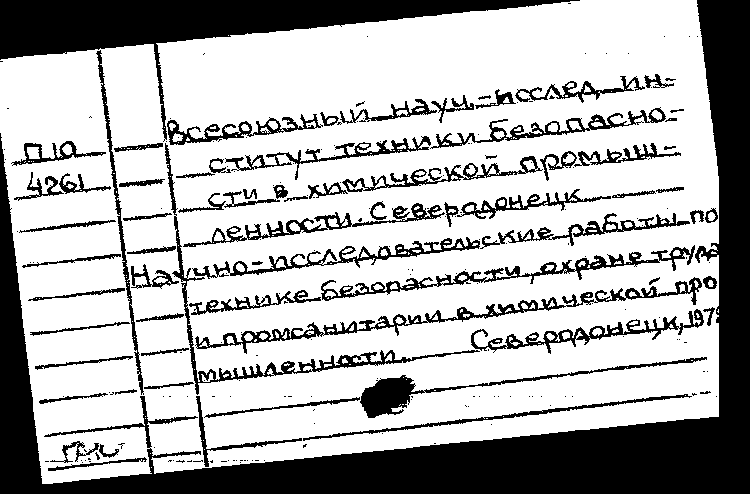 Всесоюзный науч.-исслед. ин-
П10
ститут техники безопасно-
4261
сти в химической промыш-
ленности. Северодонецк
Научно-исследовательские работы по
технике безопасности, охране труда
и промсанитарии в химической про
мышленности. Северодонецк, 197